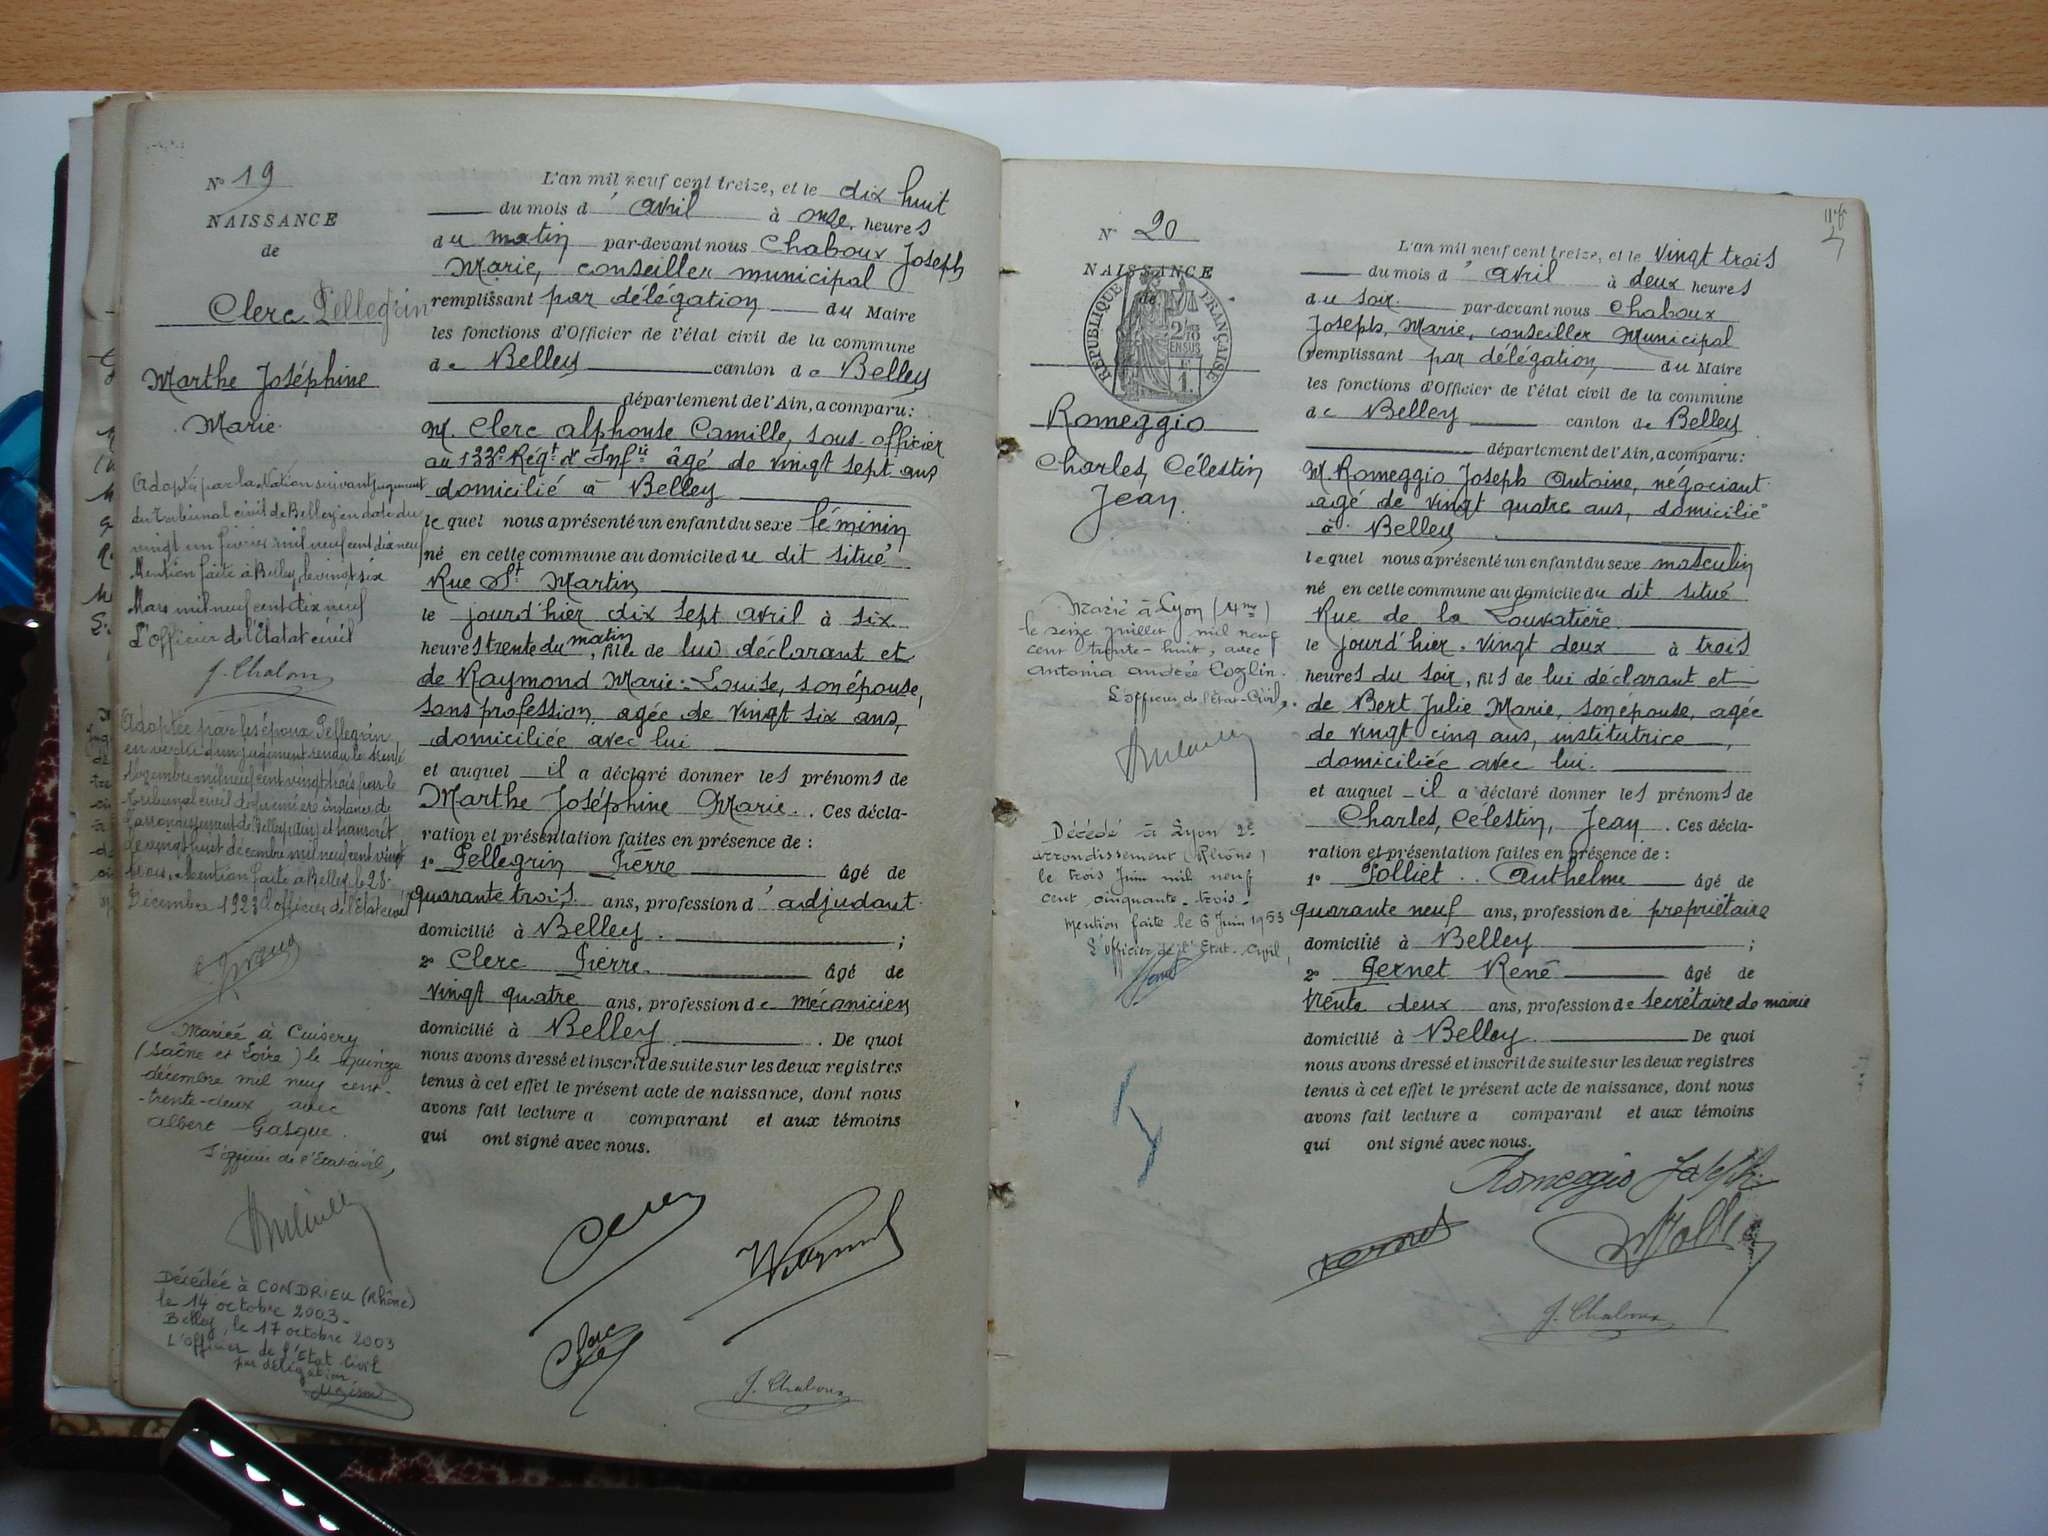 N° 19
NAISSANCE
de
Clerc Pellegrin
Marthe Joséphine
Marie.
Adoptée par la Nation suivant jugement
du tribunal civil de Belley en date du
vingt un février mil neuf cent dix neuf
Mention faite à Belley, le vingt six
Mars mil neuf cent dix neuf
L'officier de l'Etatat civil
Adoptée par les époux Pellegrin
en vertu d'un jugement rendu le trente
Novembre mil neuf cent vingt trois par le
tribunal civil de première instance de
l'arrondissement de Belley (Ain) et transcrit
le vingt huit décembre mil neuf cent vingt
trois. Mention faite à Belley le 28
Décembre 1923 l'officier de l'Etat civil
Mariée à Cuisery
(Saône et Loire) le quinze
décembre mil neuf cent
-trente-deux, avec
Albert Gasque.
L'officier de l'Etat civil,
Décédée à CONDRIEU (Rhône)
le 14 octobre 2003-
Belley, le 17 octobre 2003
L'Officier de l'Etat Civil
par délégation
L'an mil neuf cent treize, et le dix huit
du mois d'avril à onze heures
du matin par-devant nous Chaboux Joseph
Marie, conseiller municipal
remplissant par délégation du Maire
les fonctions d'Officier de l'état civil de la commune
de Belley canton de Belley
département de l'Ain, a comparu:
M. Clerc Alphonse Camille, sous-officier
au 133e Régt d'Infie âgé de vingt sept ans
domicilié à Belley
lequel nous a présenté un enfant du sexe féminin
né en cette commune au domicile du dit situé
Rue St Martin
le jourd'hier dix sept avril à six
heures trente du matin, fille de lui déclarant et
de Raymond Marie-Louise, son épouse,
sans profession, agée de vingt six ans,
domiciliée avec lui
et auquel il a déclaré donner les prénoms de
Marthe Joséphine Marie. Ces décla-
ration et présentation faites en présence de :
1° Pellegrin Pierre âgé de
quarante trois ans, profession d'adjudant
domicilié à Belley ;
2° Clerc Pierre âgé de
vingt quatre ans, profession de mécanicien
domicilié à Belley. De quoi
nous avons dressé et inscrit de suite sur les deux registres
tenus à cet effet le présent acte de naissance, dont nous
avons fait lecture a comparant et aux témoins
qui ont signé avec nous.
Clerc
J. Chaboux
N° 20
NAISSANCE
de
RÉPUBLIQUE FRANÇAISE
2/10
EN SUS
1
Romeggio
Charles, Célestin
Jean.
Marié à Lyon (4me)
le seize juillet mil neuf
cent trente-huit, avec
Antonia Andrée Coglin.
L'officier de l'Etat-Civil,
Décédé à Lyon 2e
arrondissement (Rhône)
le trois Juin mil neuf
cent cinquante-trois.
Mention faite le 6 Juin 1953
L'officier de l'Etat-Civil,
L'an mil neuf cent treize, et le vingt trois
du mois d'avril à deux heures
du soir par-devant nous Chaboux
Joseph, Marie, conseiller Municipal
remplissant par délégation, du Maire
les fonctions d'Officier de l'état civil de la commune
de Belley canton de Belley
département de l'Ain, a comparu:
M. Romeggio Joseph Antoine, négociant
agé de vingt quatre ans, domicilié
à Belley
lequel nous a présenté un enfant du sexe masculin
né en cette commune au domicile du dit situé
Rue de la Louvatière
le jourd'hier vingt deux à trois
heures du soir, fils de lui déclarant et
de Bert Julie Marie, son épouse, agée
de vingt cinq ans, institutrice,
domiciliée avec lui.
et auquel il a déclaré donner les prénoms de
Charles, Célestin, Jean. Ces décla-
ration et présentation faites en présence de :
1° Folliet Anthelme âgé de
quarante neuf ans, profession de propriétaire
domicilié à Belley ;
2° Pernet René âgé de
trente deux ans, profession de secrétaire de mairie
domicilié à Belley De quoi
nous avons dressé et inscrit de suite sur les deux registres
tenus à cet effet le présent acte de naissance, dont nous
avons fait lecture a comparant et aux témoins
qui ont signé avec nous.
Romeggio Joseph
Pernet
J. Chaboux